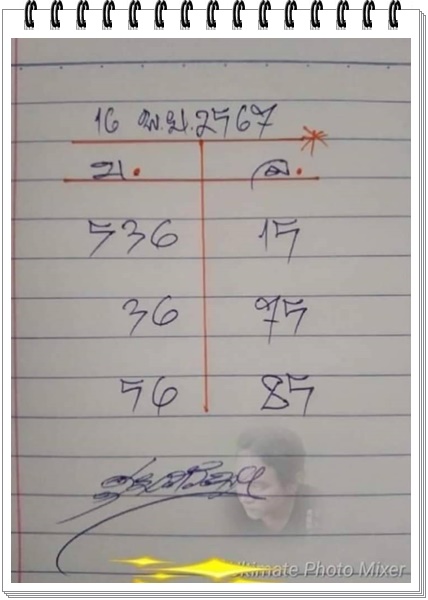 16 พ.ย. 2567
บ. ล.
536 15
36 75
56 85
Ultimate Photo Mixer